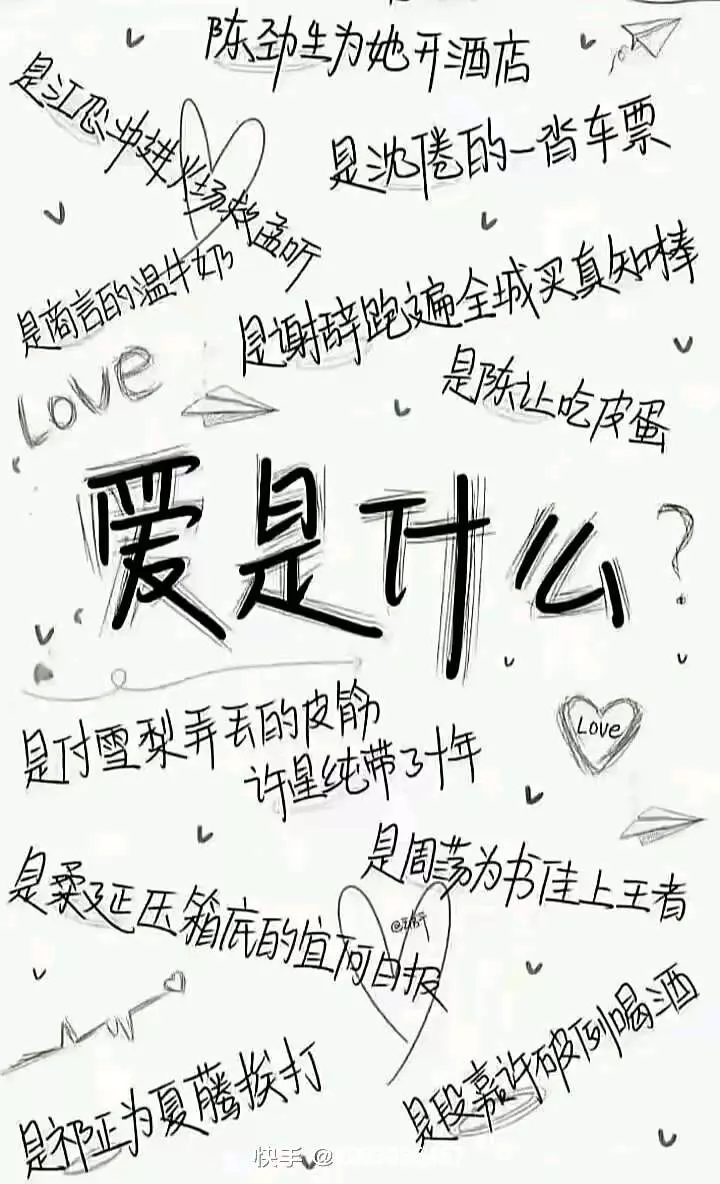 陈劲生为她开酒店
是江忍冲进火场救孟听
是沈倦的一沓车票
是商言的温牛奶
是谢辞跑遍全城买真知棒
Love
是陈让吃皮蛋
爱是什么?
是付雪梨弄丢的皮筋
许星纯带了十年
Love
是周荡为书佳上王者
是柔延压箱底的宜何日报
是段嘉许破例喝酒
是祁正为夏藤挨打
快手 @